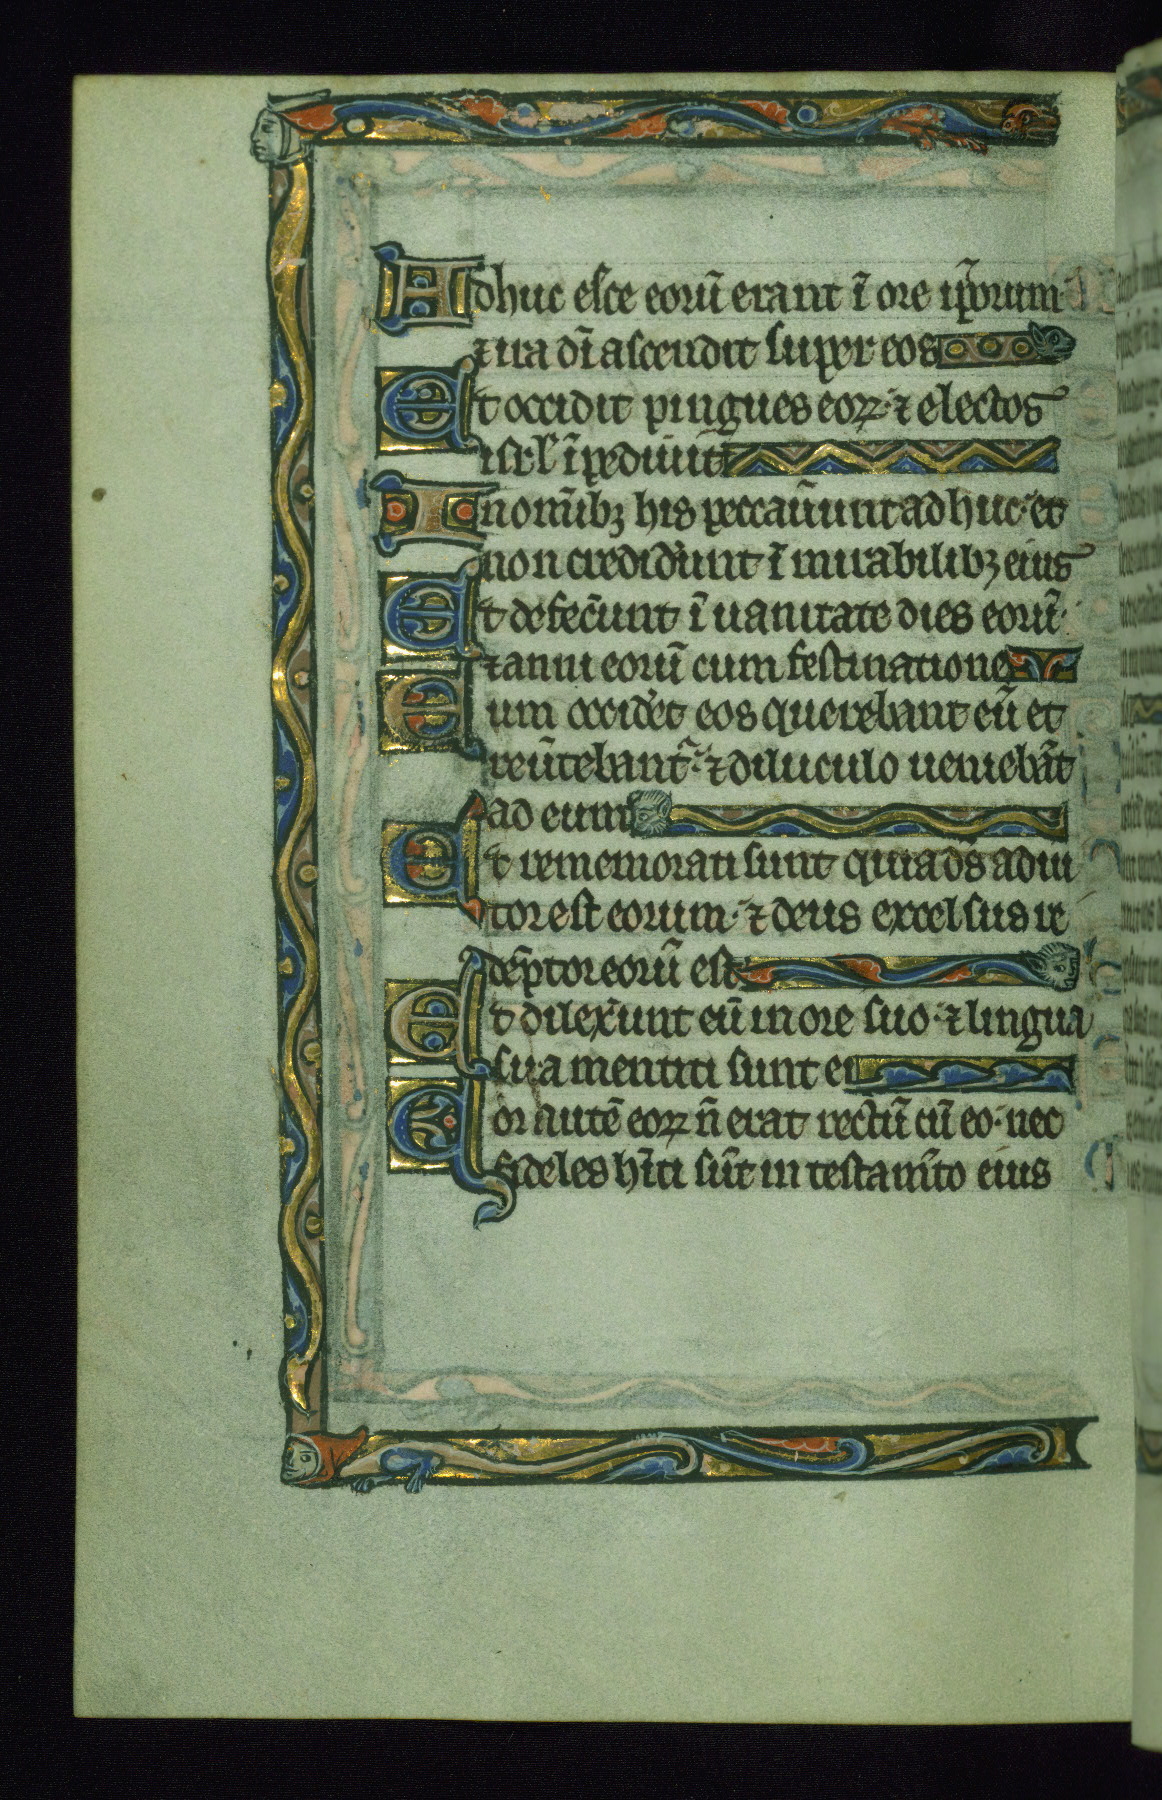 Adhuc esce eoꝝ̄ erant ī ore ip̄orum·
⁊ ira dī ascendit super eos
Et occidit pingues eoꝝ· ⁊ electos
isrł īpediuit
In om̄ibꝫ his peccauer̄unt adhuc· et
non credider̄unt ī mirabilibꝫ eius
Et defecer̄unt ī uanitate dies eorū·
⁊ anni eorū cum festinatione
Cum occider̄et eos querebant eū et
reūtebant̄ᷣ· ⁊ diluculo ueniebāt
ad eum
Et rememorati sunt quia dс̄ adiu
tor est eorum· ⁊ deus excelsus re
dēptor eorū est
Et dilexer̄unt eū in ore suo· ⁊ lingua
sua mentiti sunt ei
Cor autē eoꝝ n̄ erat rectū cū eo· nec
fideles hīti sūt in testam̄to eius